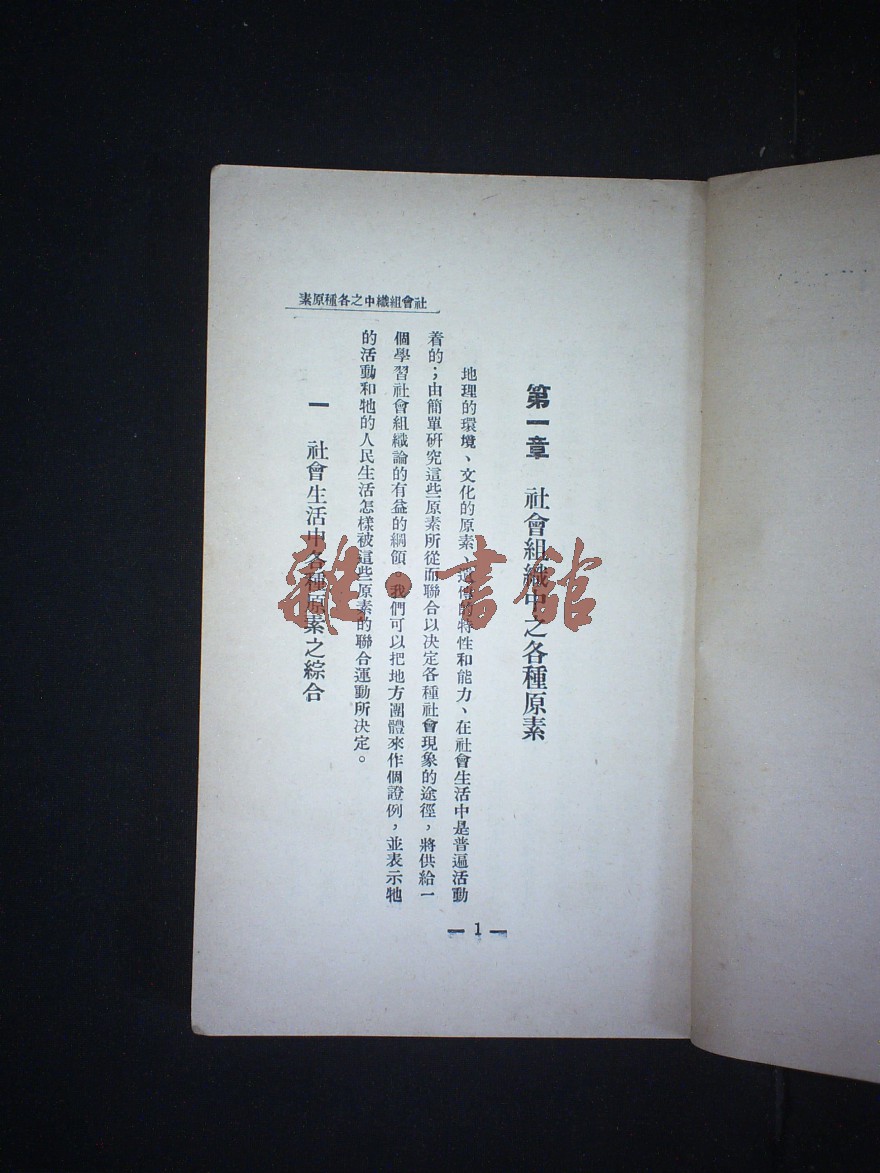 社會組織中之各種原素
第一章 社會組織中之各種原素
地理的環境、文化的原素、遺傳的特性和能力、在社會生活中是普遍活動
着的；由簡單研究這些原素所從而聯合以决定各種社會現象的途徑，將供給一
個學習社會組織論的有益的綱領。我們可以把地方團體來作個證例，並表示牠
的活動和牠的人民生活怎樣被這些原素的聯合運動所决定。
一 社會生活中各種原素之綜合
— 1 —
雜·書館